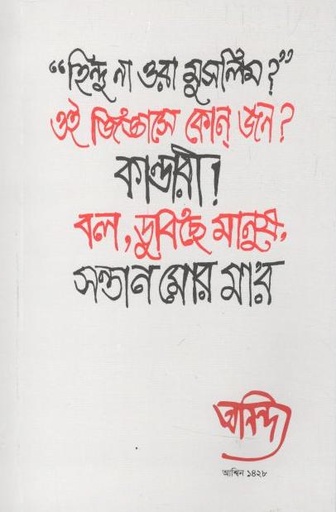 “হিন্দু না ওরা মুসলিম?”
ওই জিজ্ঞাসে কোন্ জন?
কান্ডারী!
বল, ডুবিছে মানুষ,
সন্তান মোর মার
আনন্দ
আশ্বিন ১৪২৮